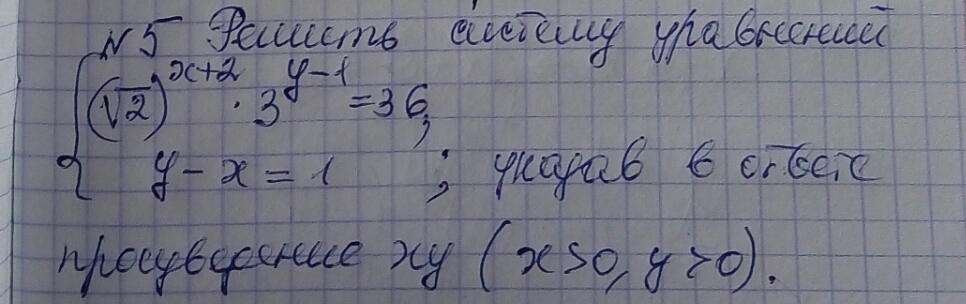 №5 Решить систему уравнений
{(√2)^(x+2) · 3^(y-1) = 36,
y - x = 1 ; указав в ответе
произведение xy (x>0, y>0).